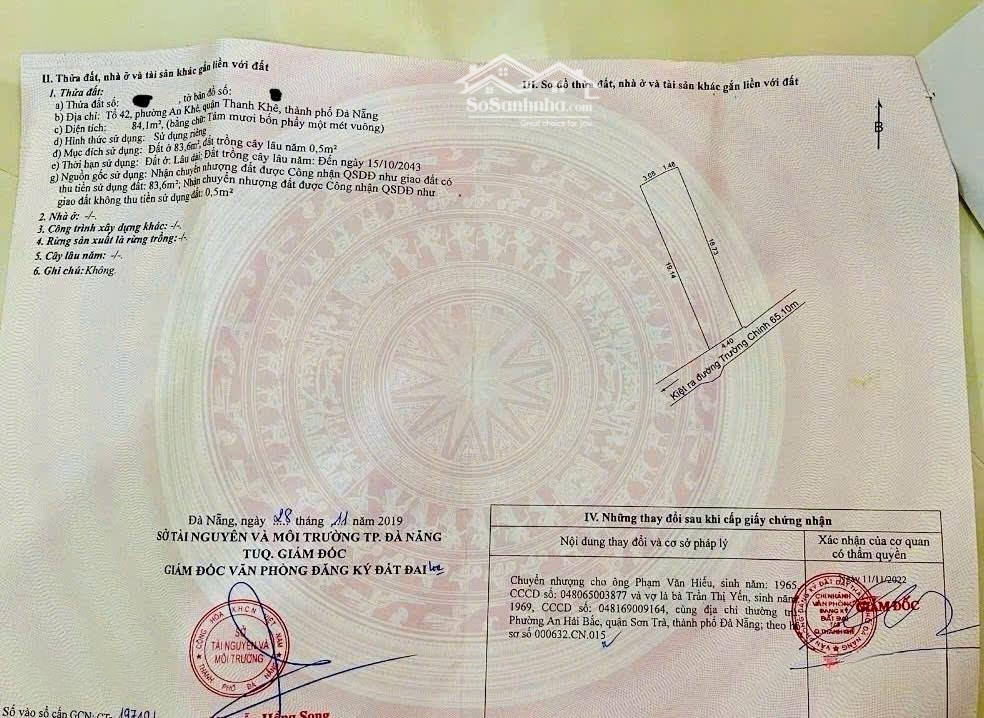 II. Thửa đất, nhà ở và tài sản khác gắn liền với đất
1. Thửa đất:
a) Thửa đất số: , tờ bản đồ số:
b) Địa chỉ: Tổ 42, phường An Khê, quận Thanh Khê, thành phố Đà Nẵng
c) Diện tích: 84,1m², (bằng chữ: Tám mươi bốn phẩy một mét vuông)
d) Hình thức sử dụng: Sử dụng riêng
đ) Mục đích sử dụng: Đất ở 83,6m²; đất trồng cây lâu năm 0,5m²
e) Thời hạn sử dụng: Đất ở: Lâu dài; Đất trồng cây lâu năm: Đến ngày 15/10/2043
g) Nguồn gốc sử dụng: Nhận chuyển nhượng đất được Công nhận QSDĐ như giao đất có
thu tiền sử dụng đất: 83,6m²; Nhận chuyển nhượng đất được Công nhận QSDĐ như
giao đất không thu tiền sử dụng đất: 0,5m²
2. Nhà ở: -/-.
3. Công trình xây dựng khác: -/-.
4. Rừng sản xuất là rừng trồng: -/-
5. Cây lâu năm: -/-.
6. Ghi chú: Không.
SoSanhnha.com
Great choice for you
III. Sơ đồ thửa đất, nhà ở và tài sản khác gắn liền với đất
B
3.08 1.48
19.14
18.73
4.40
Kiệt ra đường Trường Chinh 65.10m
Đà Nẵng, ngày 28 tháng 11 năm 2019
SỞ TÀI NGUYÊN VÀ MÔI TRƯỜNG TP. ĐÀ NẴNG
TUQ. GIÁM ĐỐC
GIÁM ĐỐC VĂN PHÒNG ĐĂNG KÝ ĐẤT ĐAI
SỞ
TÀI NGUYÊN VÀ
MÔI TRƯỜNG
THÀNH PHỐ ĐÀ NẴNG
Hồng Song
Số vào sổ cấp GCN: CT-
IV. Những thay đổi sau khi cấp giấy chứng nhận
Nội dung thay đổi và cơ sở pháp lý
Xác nhận của cơ quan
có thẩm quyền
Chuyển nhượng cho ông Phạm Văn Hiếu, sinh năm: 1965
CCCD số: 048065003877 và vợ là bà Trần Thị Yến, sinh năm
1969, CCCD số: 048169009164, cùng địa chỉ thường trú
Phường An Hải Bắc, quận Sơn Trà, thành phố Đà Nẵng; theo hồ
sơ số 000632.CN.015
Ngày 11/11/2022
GIÁM ĐỐC
CHI NHÁNH
VĂN PHÒNG
ĐĂNG KÝ
ĐẤT ĐAI